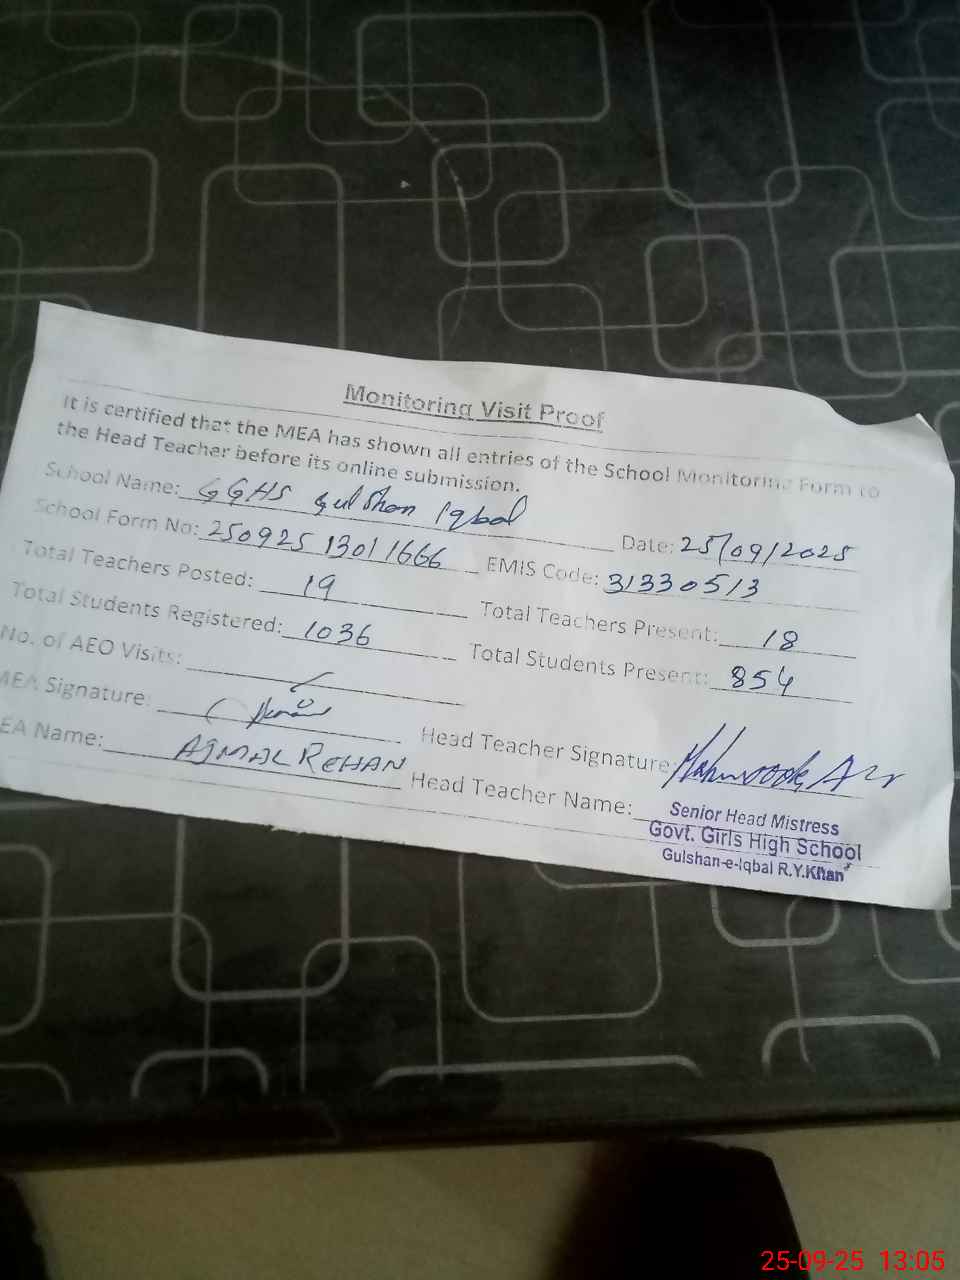 Monitoring Visit Proof
It is certified that the MEA has shown all entries of the School Monitoring Form to
the Head Teacher before its online submission.
School Name: GGHS Gulshan Iqbal Date: 25/09/2025
School Form No: 250925 13011666 EMIS Code: 31330513
Total Teachers Posted: 19 Total Teachers Present: 18
Total Students Registered: 1036 Total Students Present: 854
No. of AEO Visits:
MEA Signature: Head Teacher Signature:
EA Name: AJMAL REHAN Head Teacher Name:
Senior Head Mistress
Govt. Girls High School
Gulshan-e-Iqbal R.Y.Khan
25-09-25 13:05